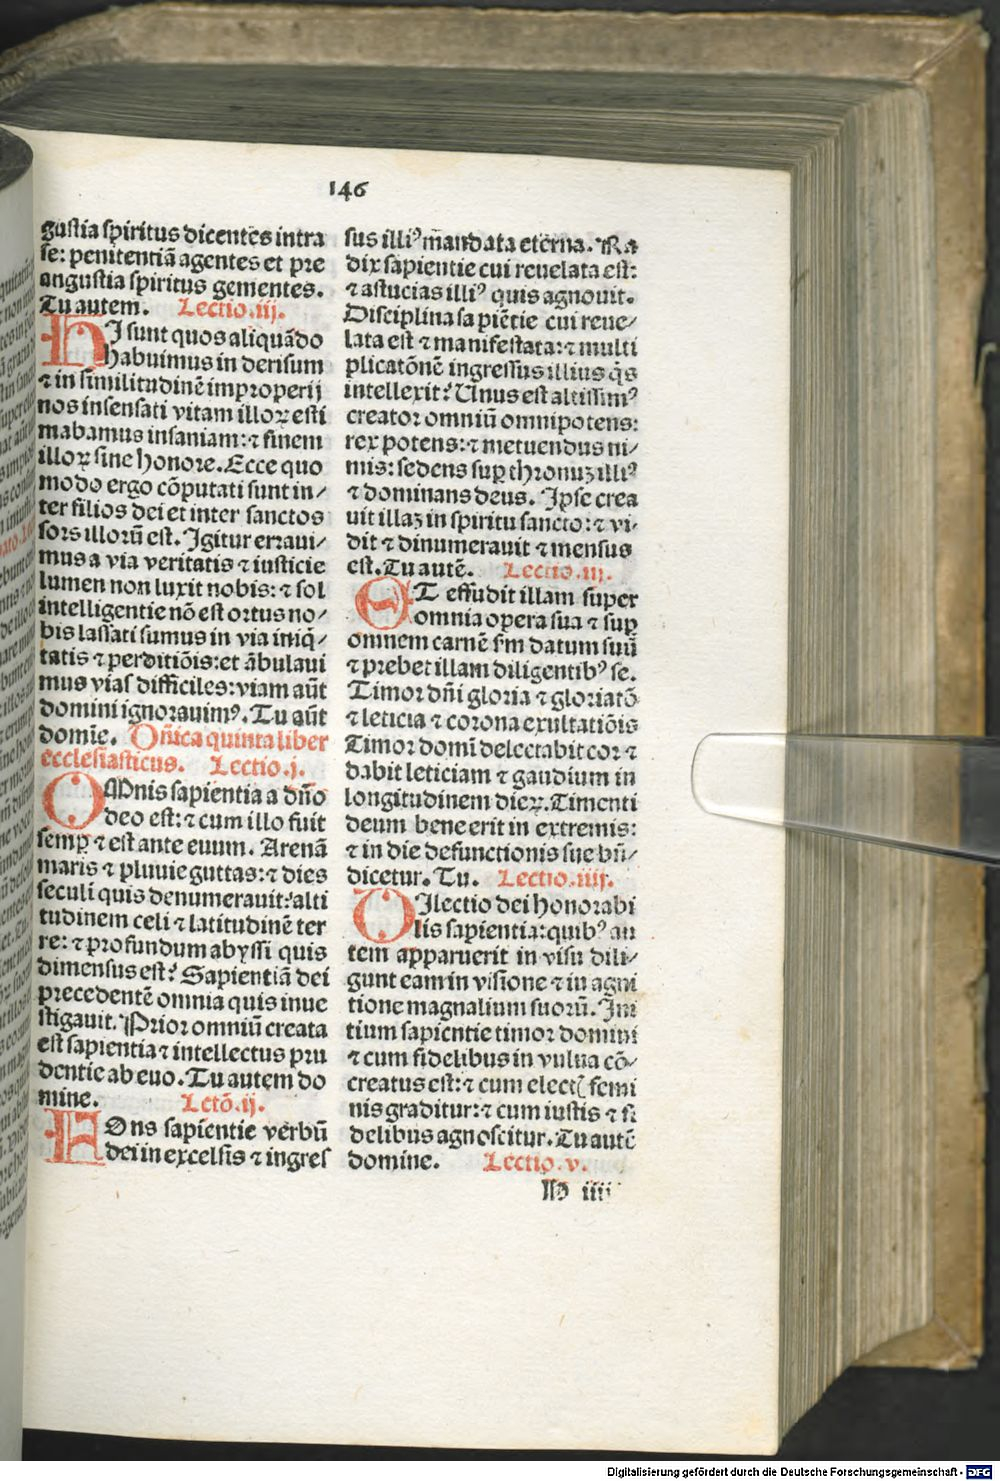 146
gustia spiritus dicentes intra
se: penitentiā agentes et pre
angustia spiritus gementes.
Tu autem. Lectio.iij.
HI sunt quos aliquādo
habuimus in derisum
⁊ in similitudinē improperij
nos insensati vitam illoꝝ esti
mabamus insaniam:⁊ finem
illoꝝ sine honore. Ecce quo
modo ergo cōputati sunt in/
ter filios dei et inter sanctos
sors illorū est. Igitur erraui/
mus a via veritatis ⁊ iusticie
lumen non luxit nobis: ⁊ sol
intelligentie nō est ortus no/
bis lassati sumus in via iniq̄/
tatis ⁊ perditiōis:et ābulaui
mus vias difficiles:viam aūt
domini ignorauimꝰ. Tu aūt
domīe. Dn̄ica quinta liber
ecclesiasticus. Lectio.j.
OMnis sapientia a dn̄o
deo est:⁊ cum illo fuit
semꝑ ⁊ est ante euum. Arenā
maris ⁊ pluuie guttas:⁊ dies
seculi quis denumerauit:alti
tudinem celi ⁊ latitudinē ter
re: ⁊ profundum abyssi quis
dimensus est? Sapientiā dei
precedentē omnia quis inue
stigauit. Prior omniū creata
est sapientia ⁊ intellectus pru
dentie ab euo. Tu autem do
mine. Lctō.ij.
FOns sapientie verbū
dei in excelsis ⁊ ingres
sus illiꝰ mandata eterna. Ra
dix sapientie cui reuelata est:
⁊ astucias illiꝰ quis agnouit.
Disciplina sapiētie cui reue/
lata est ⁊ manifestata:⁊ multi
plicatōnē ingressus illius q̄s
intellexit? Unus est altissimꝰ
creator omniū omnipotens:
rex potens:⁊ metuendus ni/
mis: sedens suꝑ thronuꝫ illiꝰ
⁊ dominans deus. Ipse crea
uit illaꝫ in spiritu sancto:⁊ vi/
dit ⁊ dinumerauit ⁊ mensus
est. Tu autē. Lectio.iij.
ET effudit illam super
omnia opera sua ⁊ suꝑ
omnem carnē sm̄ datum suū
⁊ prebet illam diligentibꝰ se.
Timor dn̄i gloria ⁊ gloriatō
⁊ leticia ⁊ corona exultatiōis
Timor domī delectabit cor ⁊
dabit leticiam ⁊ gaudium in
longitudinem dieꝝ. Timenti
deum bene erit in extremis:
⁊ in die defunctionis sue bn̄/
dicetur. Tu. Lectio.iiij.
DIlectio dei honorabi
lis sapientia:quibꝰ au
tem apparuerit in visu dili/
gunt eam in visione ⁊ in agni
tione magnalium suorū. Ini
tium sapientie timor domini
⁊ cum fidelibus in vulua cō/
creatus est:⁊ cum electꝭ femi
nis graditur:⁊ cum iustis ⁊ fi
delibus agnoscitur. Tu autē
domine. Lectio.v.
M iiij
Digitalisierung gefördert durch die Deutsche Forschungsgemeinschaft - DFG